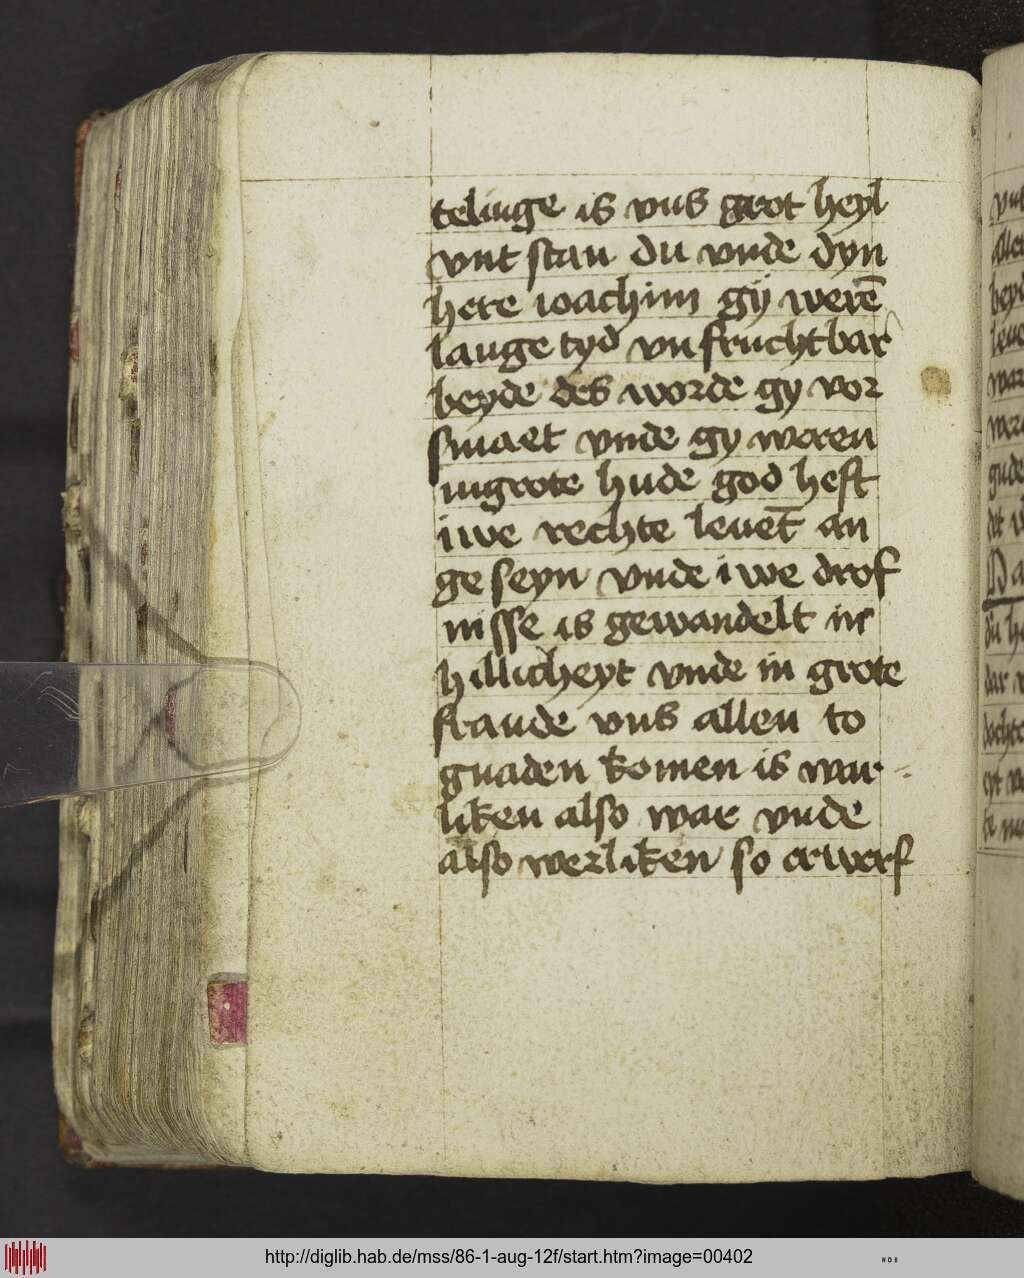 telinge is vns grot heyl
vnt stan du vnde dyn
here ioachim gÿ werē
lange tyd vnfruchtbar
beyde des worde gy vor
smaet vnde gy weren
in grote hude god heft
iwe rechte leuet̄ an
ge seyn vnde iwe drof
nisse is gewandelt in
hillicheyt vnde in grote
fraude vns allen to
gnaden komen is war
liken also war vnde
also werliken so erwerf
http://diglib.hab.de/mss/86-1-aug-12f/start.htm?image=00402